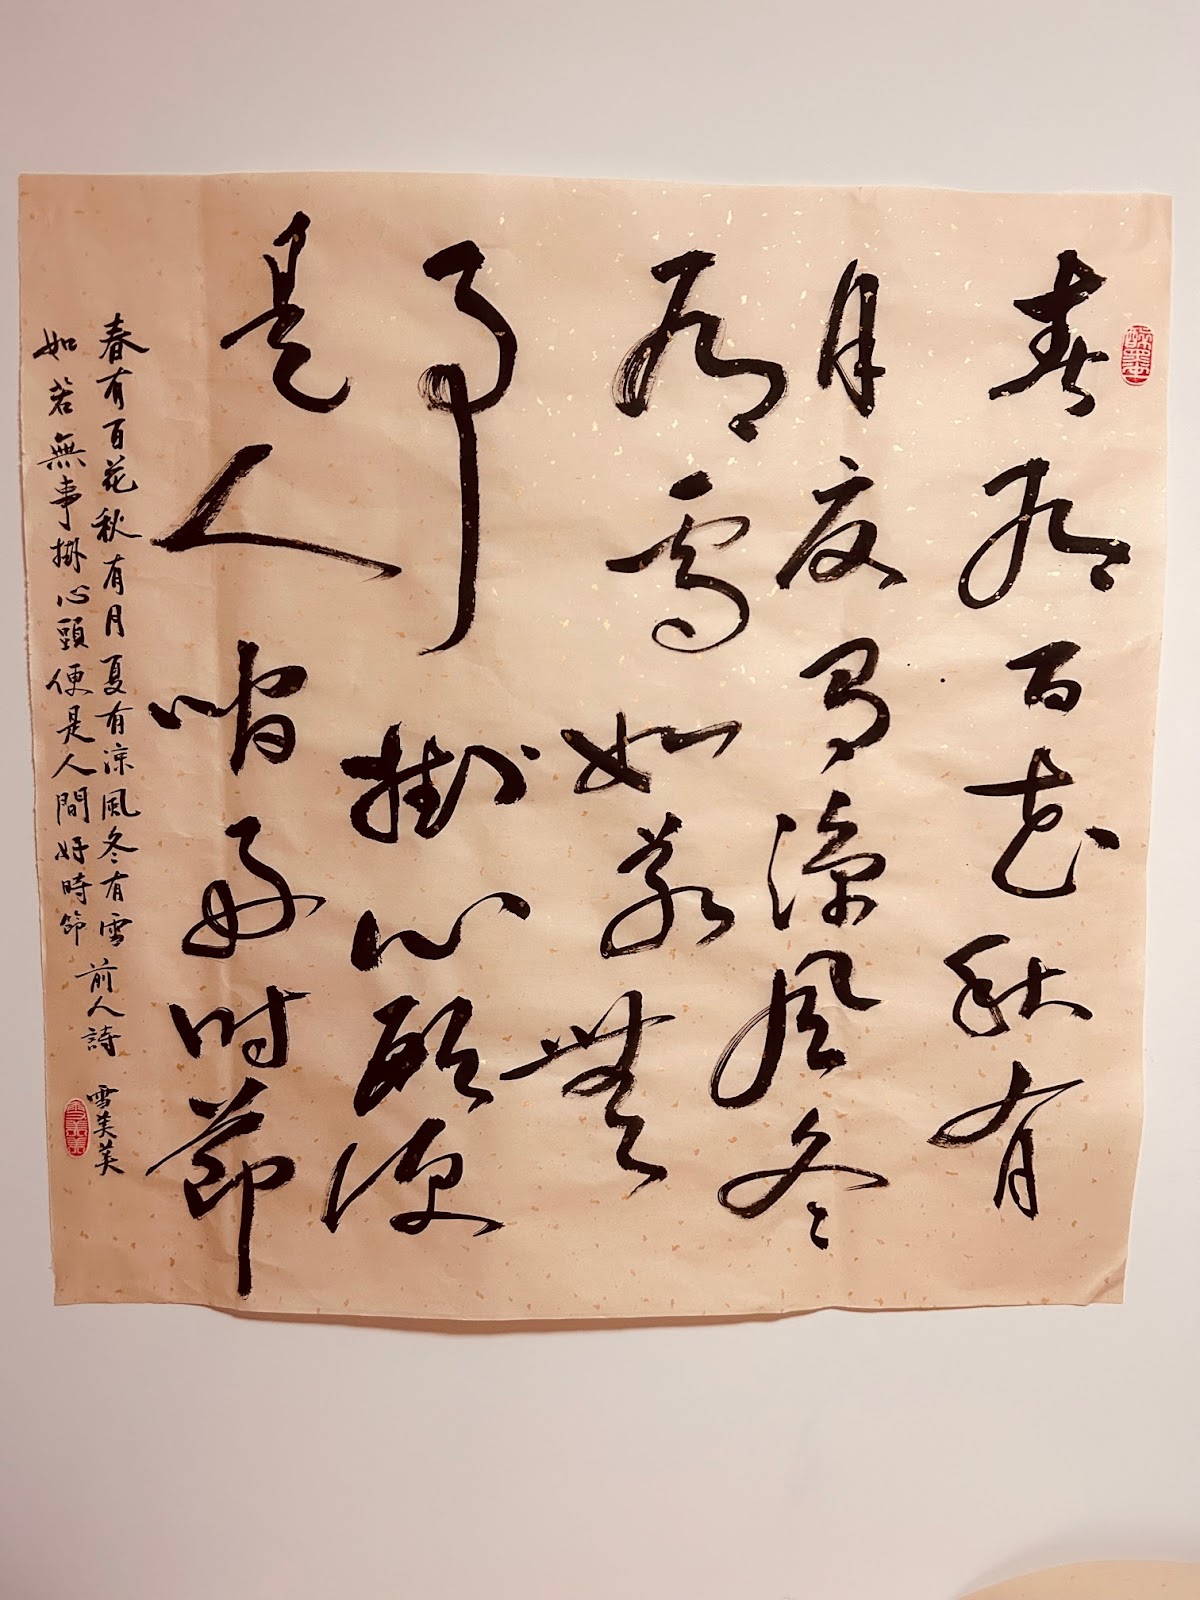 春有百花秋有
月夏有涼風冬
有雪如若無
事掛心頭便
是人間好時節
春有百花秋有月夏有涼風冬有雪
如若無事掛心頭便是人間好時節
前人詩 雪美